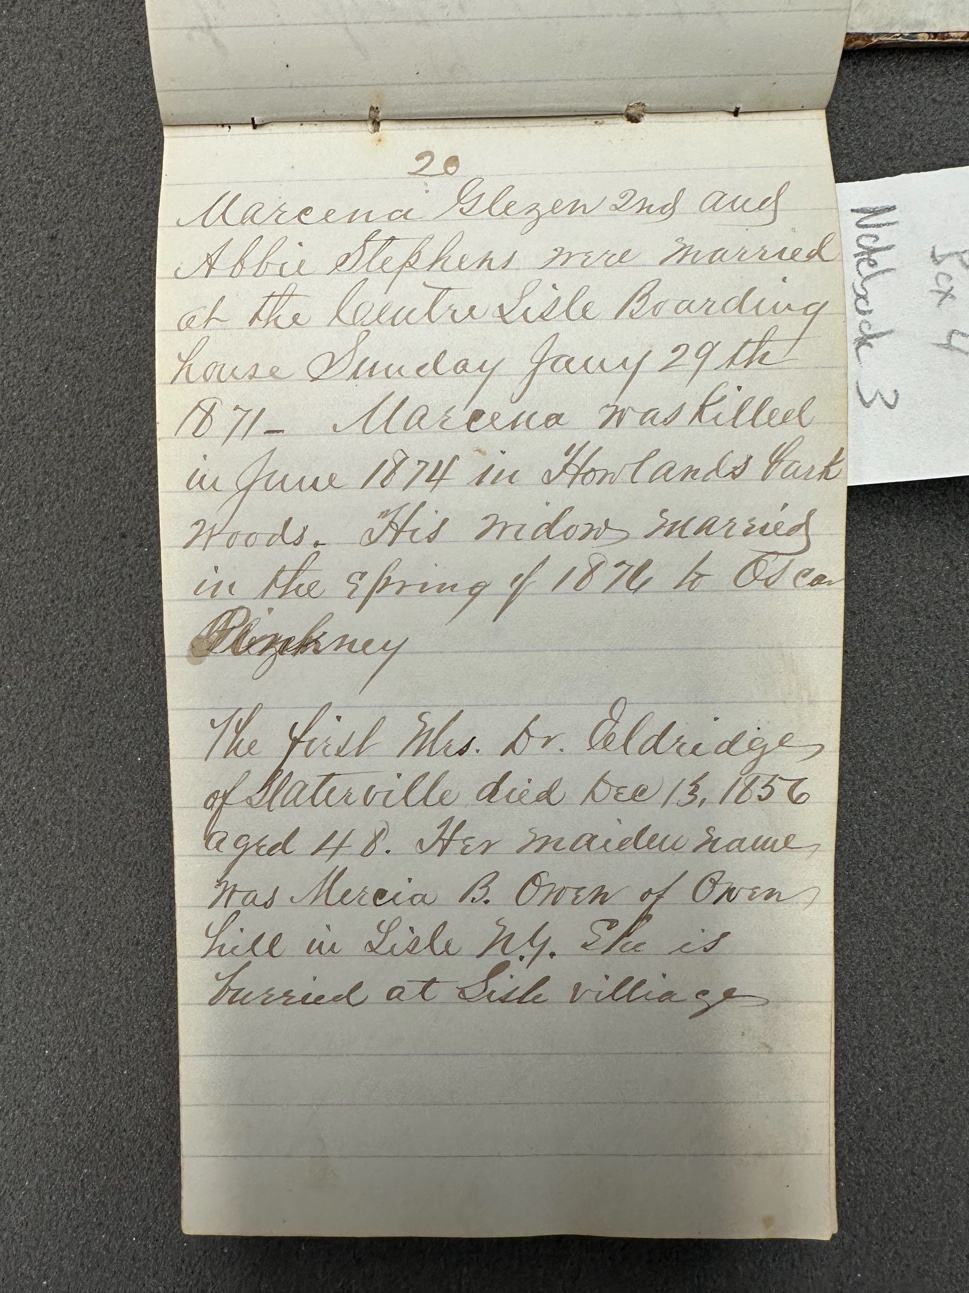 20
Marcena Glezen 2nd and
Abbie Stephens were married
at the Centre Lisle Boarding
house Sunday Jany 29th
1871- Marcena was killed
in June 1874 in Howlands bark
woods. His widow married
in the spring of 1876 to Oscar
Pinckney
The first Mrs. Dr. Eldridge
of Slaterville died Dec 13, 1856
aged 48. Her maiden name
was Mercia B. Owen of Owen
hill in Lisle N.Y. She is
burried at Lisle villiage
Notebook 3
Box 4